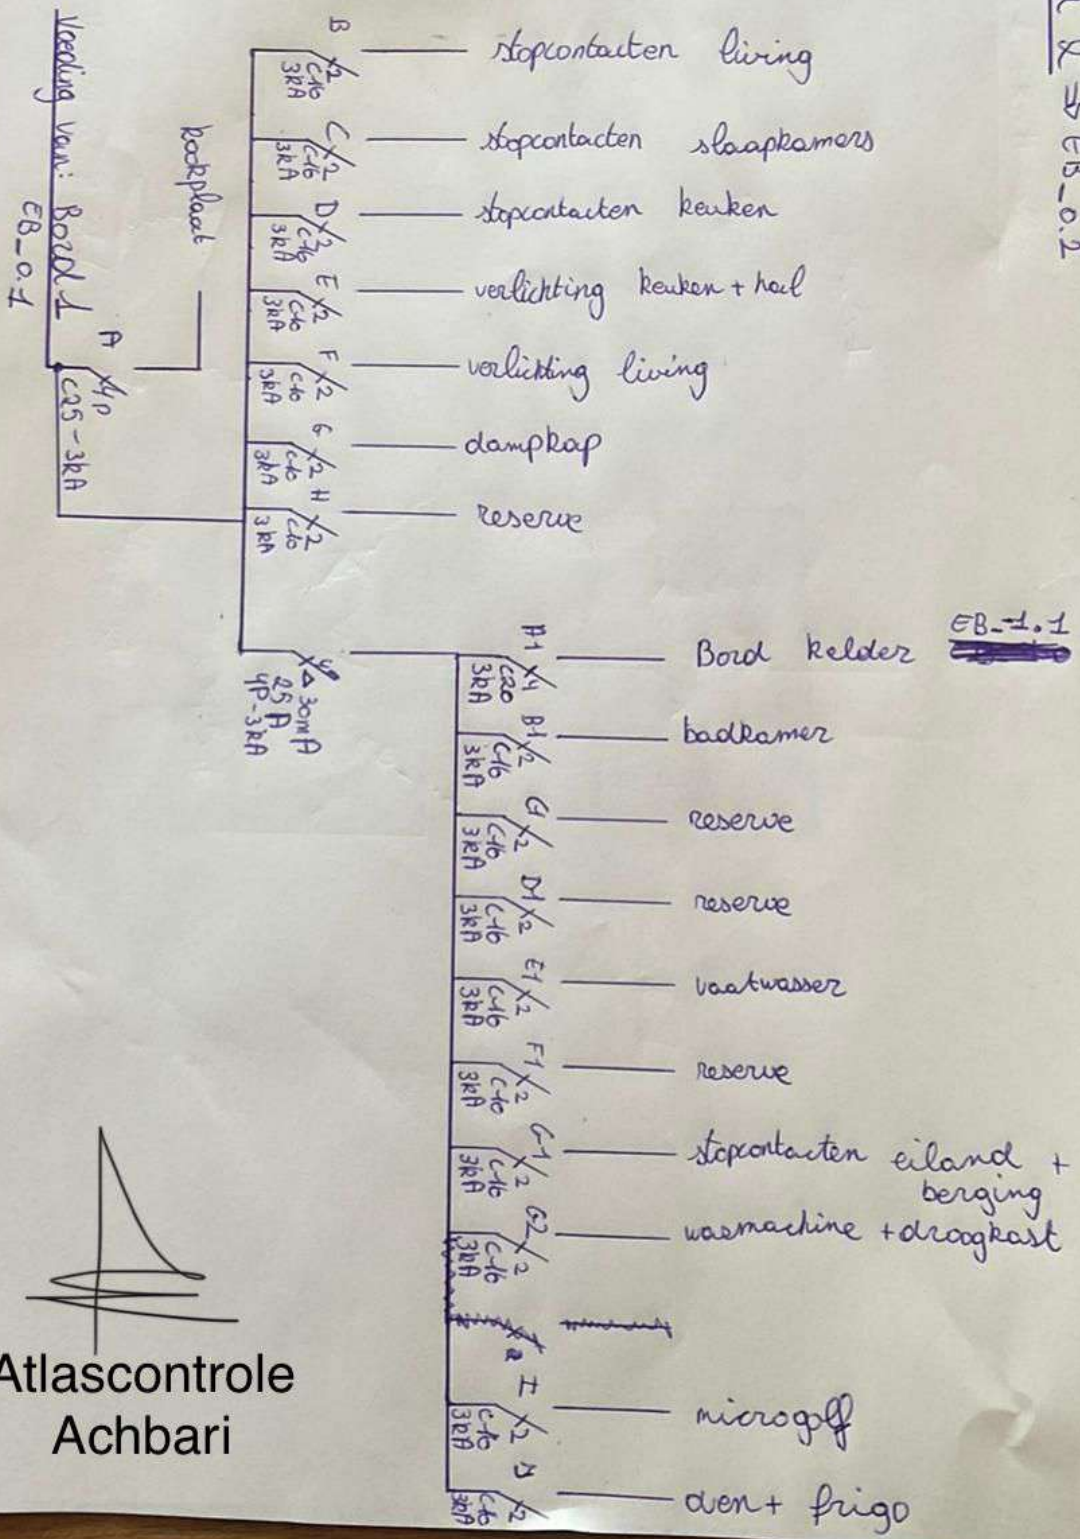 EB_0.2
B
x2
C16
3kA
stopcontacten living
C
x2
C16
3kA
stopcontacten slaapkamers
D
x2
C16
3kA
stopcontacten keuken
E
x2
C10
3kA
verlichting keuken + hal
F
x2
C10
3kA
verlichting living
G
x2
C10
3kA
dampkap
H
x2
C10
3kA
reserve
kookplaat
Voeding van: Bord 1
EB_0.1
A
x4P
C25-3kA
Δ 30mA
25A
4P-3kA
A1
x4
C20
3kA
Bord kelder EB_-1.1
B1
x2
C16
3kA
badkamer
C1
x2
C16
3kA
reserve
D1
x2
C16
3kA
reserve
E1
x2
C16
3kA
vaatwasser
F1
x2
C10
3kA
reserve
G1
x2
C16
3kA
stopcontacten eiland +
berging
G2
x2
C16
3kA
wasmachine + droogkast
I
x2
C16
3kA
microgolf
x2
3kA
oven + frigo
Atlascontrole
Achbari